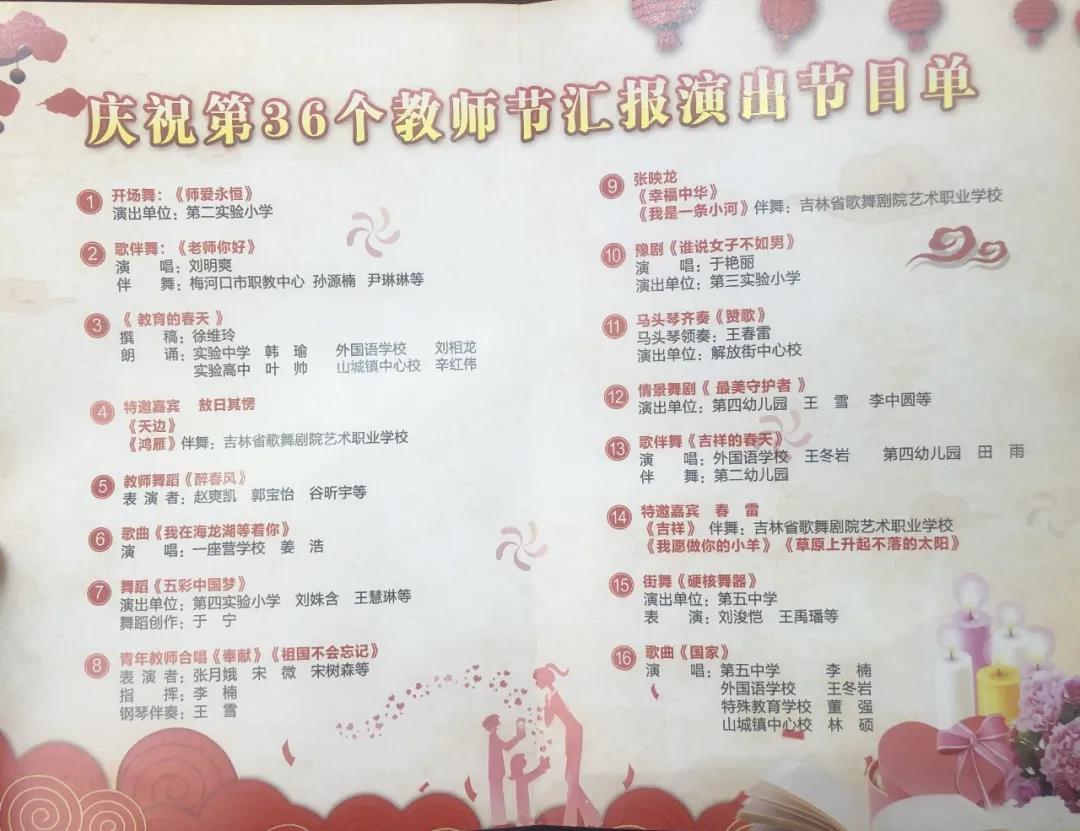 庆祝第36个教师节汇报演出节目单
1 开场舞：《师爱永恒》
演出单位：第二实验小学
2 歌伴舞：《老师你好》
演　　唱：刘明爽
伴　　舞：梅河口市职教中心 孙源楠 尹琳琳等
3 《 教育的春天 》
撰　　稿：徐维玲
朗　　诵：实验中学 韩　瑜 外国语学校 刘相龙
实验高中 叶　帅 山城镇中心校 辛红伟
4 特邀嘉宾 敖日其愣
《天边》
《鸿雁》伴舞：吉林省歌舞剧院艺术职业学校
5 教师舞蹈《醉春风》
表 演 者：赵爽凯 郭宝怡 谷昕宇等
6 歌曲《我在海龙湖等着你》
演　　唱：一座营学校 姜　浩
7 舞蹈《五彩中国梦》
演出单位：第四实验小学 刘姝含 王慧琳等
舞蹈创作：于　宁
8 青年教师合唱《奉献》《祖国不会忘记》
表 演 者：张月娥 宋　微 宋树森等
指　　挥：李　楠
钢琴伴奏：王　雪
9 张映龙
《幸福中华》
《我是一条小河》伴舞：吉林省歌舞剧院艺术职业学校
10 豫剧《谁说女子不如男》
演　　唱：于艳丽
演出单位：第三实验小学
11 马头琴齐奏《赞歌》
马头琴领奏：王春雷
演出单位：解放街中心校
12 情景舞剧《 最美守护者 》
演出单位：第四幼儿园 王　雪 李中圆等
13 歌伴舞《吉祥的春天》
演　　唱：外国语学校 王冬岩 第四幼儿园 田　雨
伴　　舞：第二幼儿园
14 特邀嘉宾 春　雷
《吉祥》 伴舞：吉林省歌舞剧院艺术职业学校
《我愿做你的小羊》《草原上升起不落的太阳》
15 街舞《硬核舞器》
演出单位：第五中学
表　　演：刘浚恺 王禹璠等
16 歌曲《国家》
演　　唱：第五中学 李　楠
外国语学校 王冬岩
特殊教育学校 董　强
山城镇中心校 林　硕